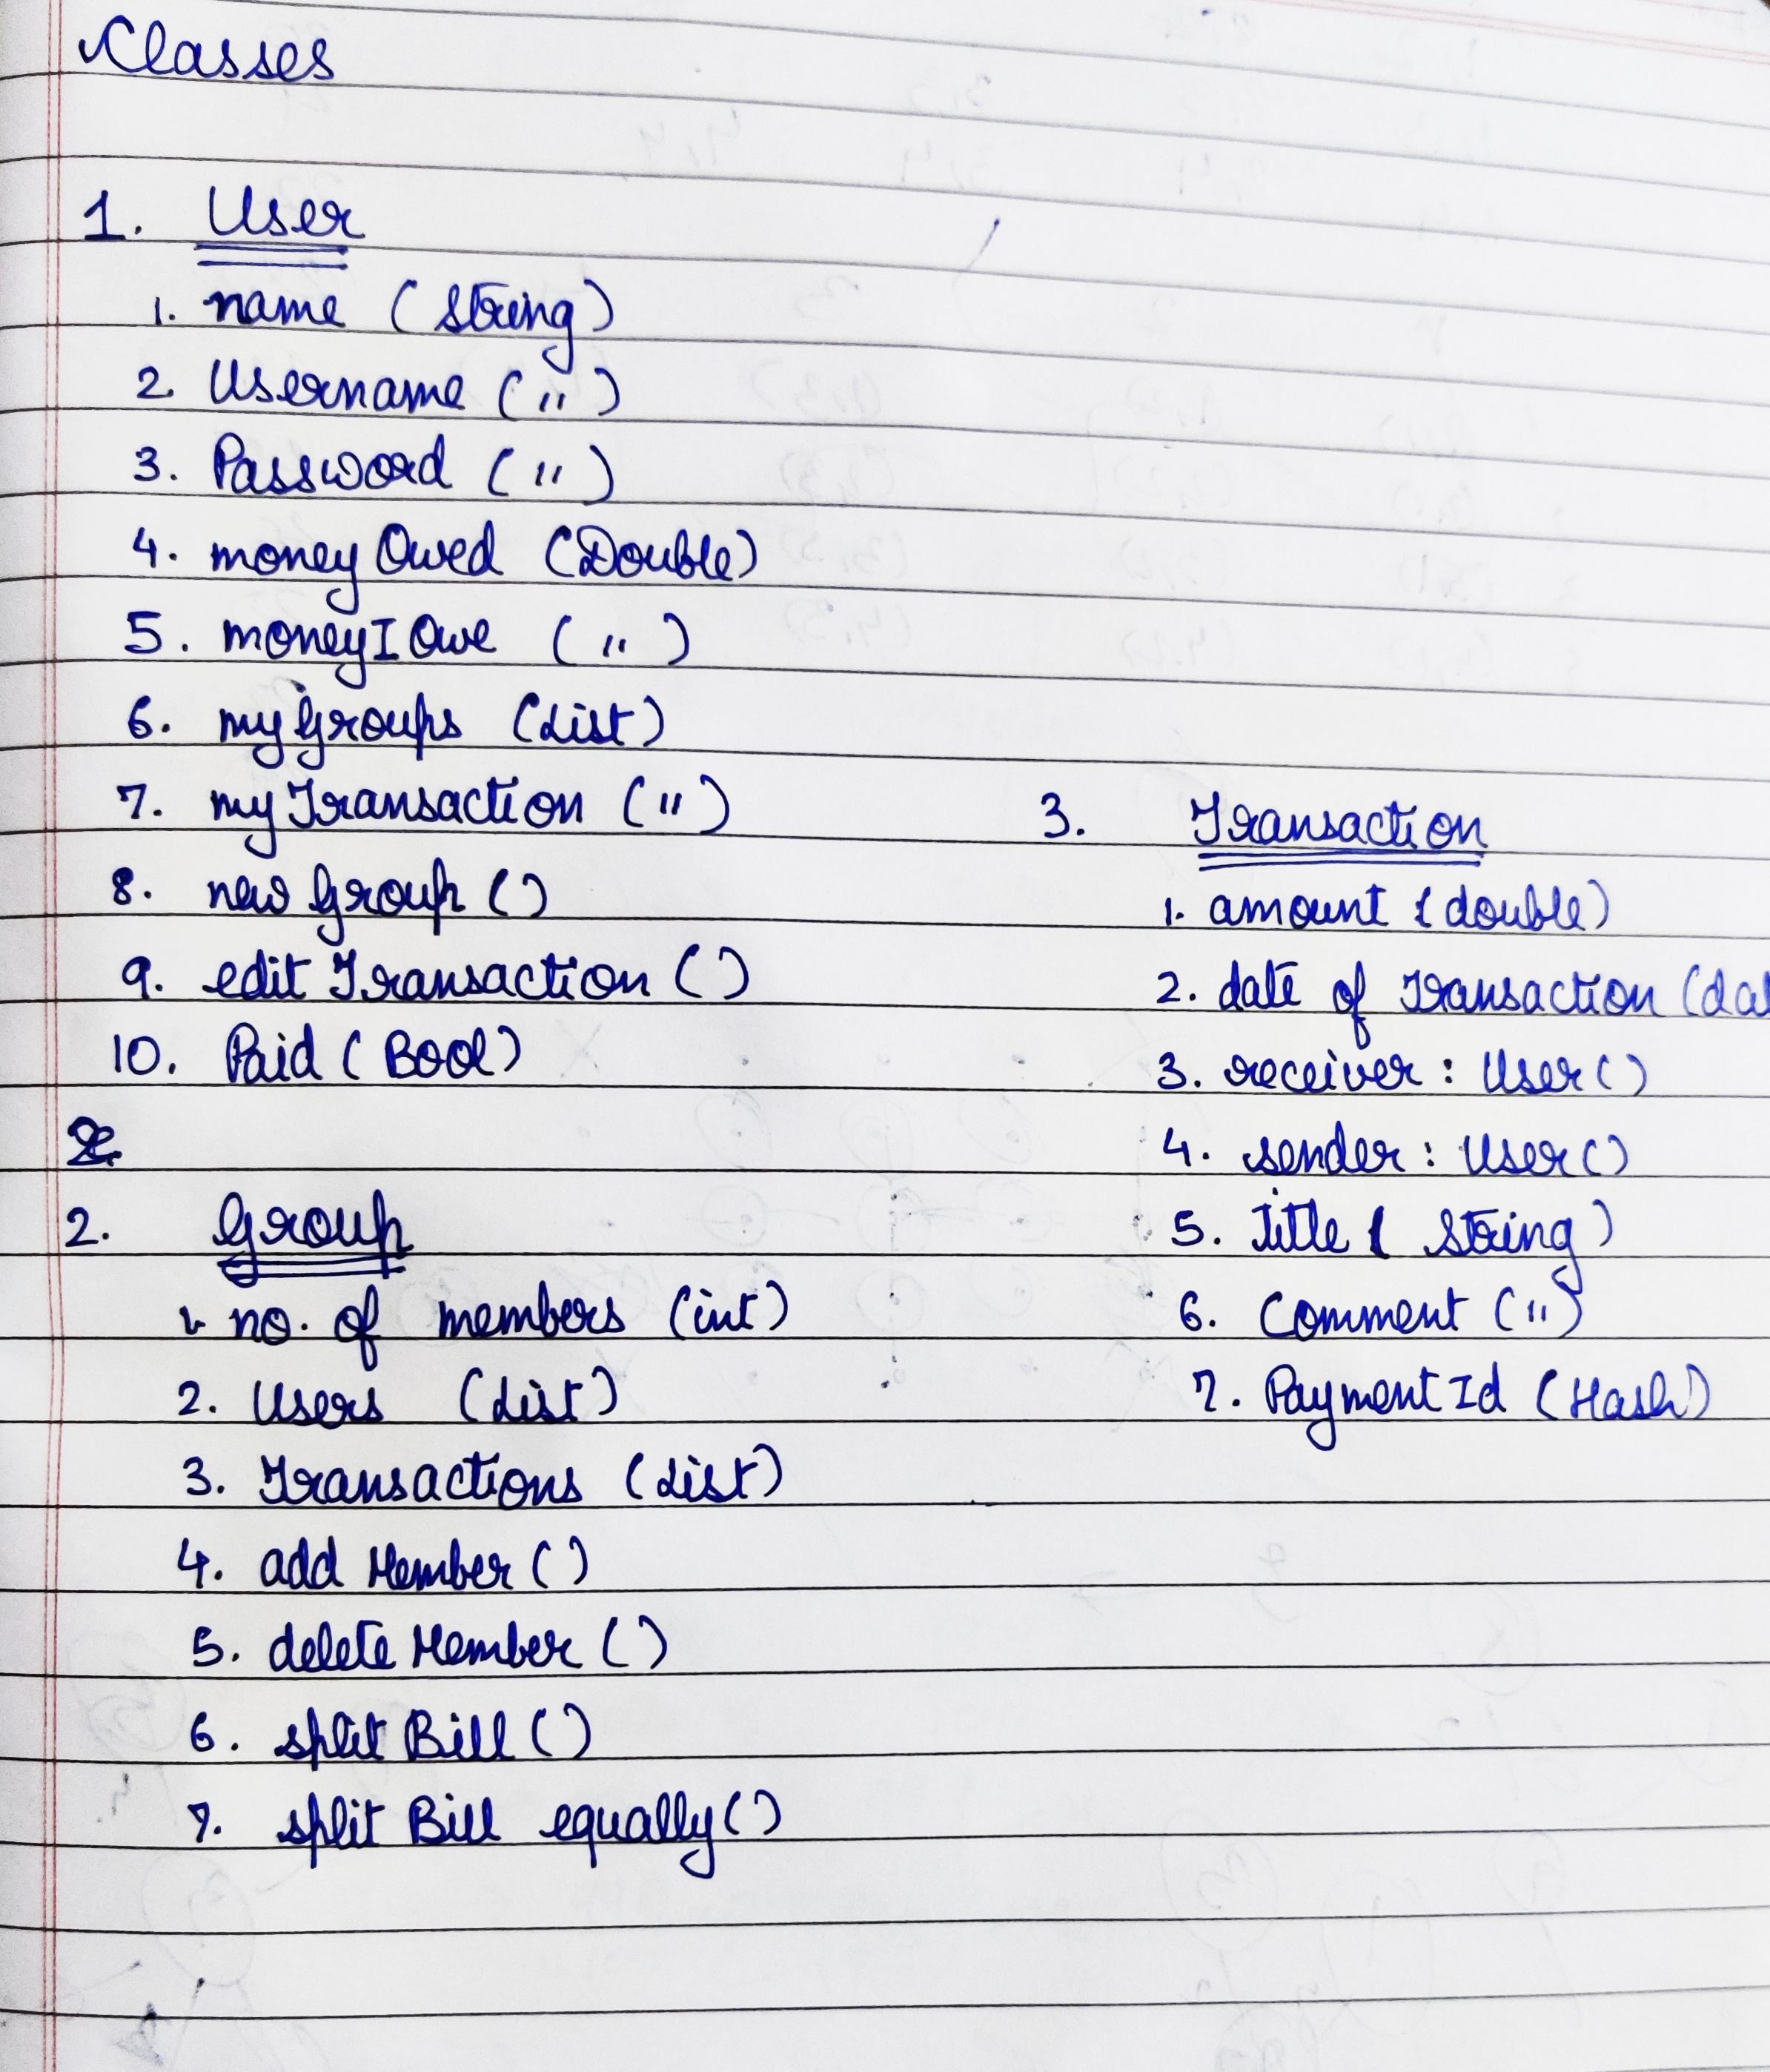 Classes
1. User
1. name (String)
2. Username ( " )
3. Password ( " )
4. moneyOwed (Double)
5. moneyIOwe ( " )
6. myGroups (List)
7. myTransaction ( " )
8. newGroup ()
9. editTransaction ()
10. Paid (Bool)
2.
2. Group
1. no. of members (int)
2. Users (List)
3. Transactions (List)
4. addMember ()
5. deleteMember ()
6. splitBill ()
7. splitBill equally ()
3. Transaction
1. amount (double)
2. date of Transaction (dat
3. receiver : User ()
4. sender : User ()
5. Title ( String )
6. Comment ( " )
7. PaymentId (Hash)